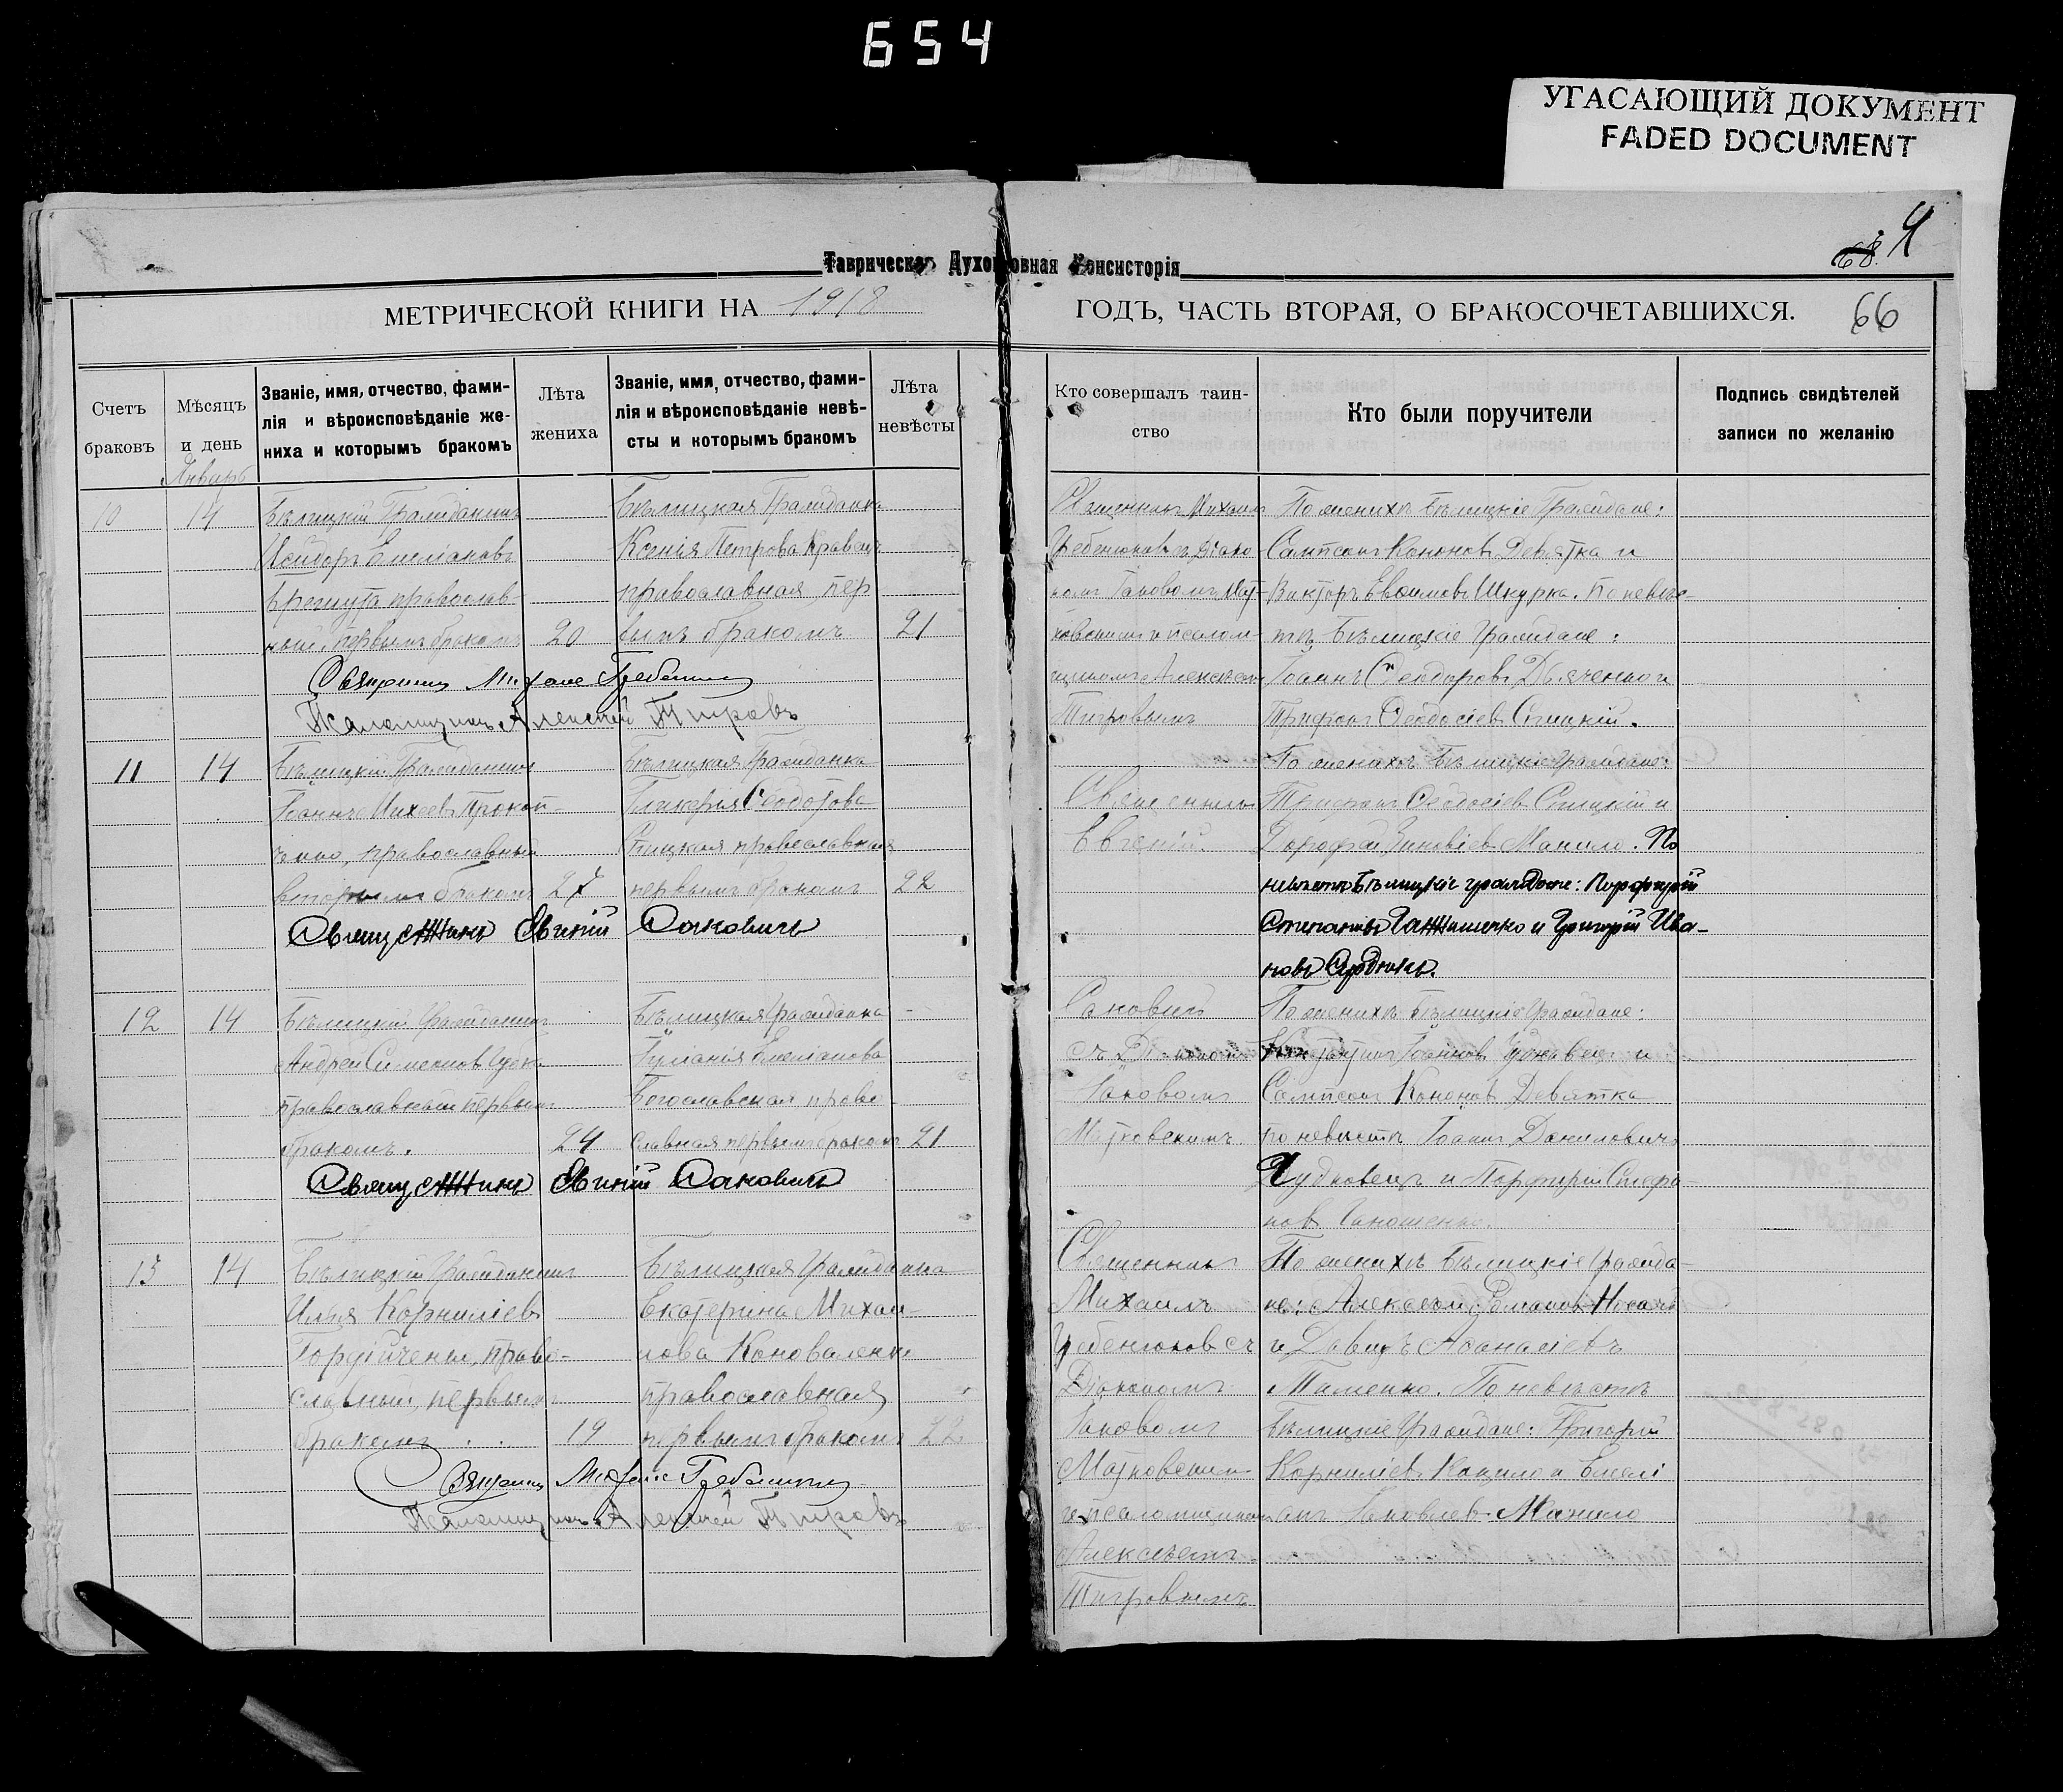 654
УГАСАЮЩИЙ ДОКУМЕНТ
FADED DOCUMENT
68. 4
Таврическая Духовная Консисторія
МЕТРИЧЕСКОЙ КНИГИ НА 1918 ГОДЪ, ЧАСТЬ ВТОРАЯ, О БРАКОСОЧЕТАВШИХСЯ. 66
Счетъ браковъ
Мѣсяцъ и день
Званіе, имя, отчество, фами-
лія и вѣроисповѣданіе же-
ниха и которымъ бракомъ
Лѣта жениха
Званіе, имя, отчество, фами-
лія и вѣроисповѣданіе невѣ-
сты и которымъ бракомъ
Лѣта невѣсты
Кто совершалъ таин-
ство
Кто были поручители
Подпись свидѣтелей
записи по желанію
Январь
10
14
Бѣлицкій Гражданинъ
Исидоръ Емеліановъ
православ-
ный, первымъ бракомъ
20
Бѣлицкая Гражданка
Ксенія Петрова Кравецъ
православная пер
вымъ бракомъ
21
Священникъ Михаилъ
Гребенюковъ Діако-
номъ Іаковомъ Мат-
ковскимъ и псалом-
щикомъ Алексѣем
Тигровымъ
По женихѣ Бѣлицкіе Граждане:
Сампсонъ Кононовъ Девятка и
Викторъ Евѳимовъ Шкурка. По невѣс-
тѣ Бѣлицкіе Граждане:
Іоаннъ Ѳеодоровъ Дьяченко и
Трифонъ Ѳеодосіевъ Спицкій.
Священникъ Михаилъ Гребенюкъ
Псаломщикъ Алексѣй Тигровъ
11
14
Бѣлицкій Гражданинъ
Іоаннъ Михеевъ Прокоп-
ченко, православный
вторымъ бракомъ
27
Бѣлицкая Гражданка
Гликерія Ѳеодотова
Спицкая православная
первымъ бракомъ
22
Священникъ
Евгеній
По женихѣ Бѣлицкіе Граждане:
Трифонъ Ѳеодосіевъ Спицкій и
Дорофей Зиновіевъ Манило. По
невѣстѣ Бѣлицкіе граждане: Порфирій
Степановъ и Григорій Ива-
новъ
Священникъ Евгеній Саковичъ
12
14
Бѣлицкій Гражданинъ
Андрей Симеоновъ
православный первымъ
бракомъ.
24
Бѣлицкая Гражданка
Іуліанія Емеліанова
Богославская право
славная первымъ бракомъ
21
Саковичъ
съ Діакономъ
Іаковомъ
Матковскимъ
По женихѣ Бѣлицкіе Граждане:
Іоанновъ и
Сампсонъ Кононовъ Девятка
по невѣстѣ Іоаннъ Даниловичъ
Чудновецъ и Порфирій Стефа-
новъ
Священникъ Евгеній Саковичъ
13
14
Бѣлицкій Гражданинъ
Илья Корниліевъ
Гордійченко, право-
славный, первымъ
бракомъ
19
Бѣлицкая Гражданка
Екатерина Михаи-
лова Коноваленко
православная
первымъ бракомъ
22
Священникъ
Михаилъ
Гребенюковъ съ
Діакономъ
Іаковомъ
Матковскимъ
и псаломщикомъ
Алексѣемъ
Тигровымъ
По женихѣ Бѣлицкіе Гражда-
не: Алексѣй Романовъ Носачъ
и Давидъ Аѳанасіевъ
Тименко. По невѣстѣ
Бѣлицкіе Граждане: Григорій
Корниліевъ Кацило и Емелі
анъ Іаковлевъ Манило
Священникъ Михаилъ Гребенюкъ
Псаломщикъ Алексѣй Тигровъ